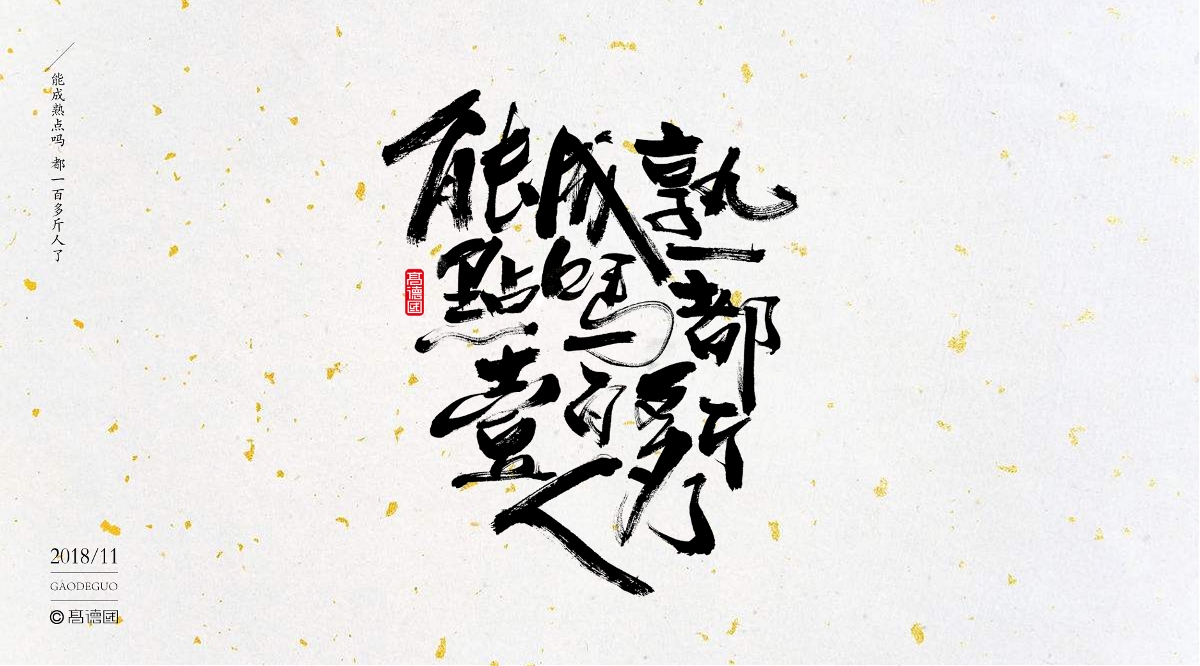 能成熟点吗 都一百多斤人了
能成熟
點嗎都
壹百多斤
人了
高德國
2018/11
GAODEGUO
©高德國